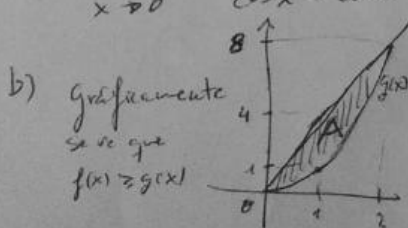 x→0
b) Gráficamente
se ve que
f(x) ≥ g(x)
8
4
1
0
1
2
A
g(x)